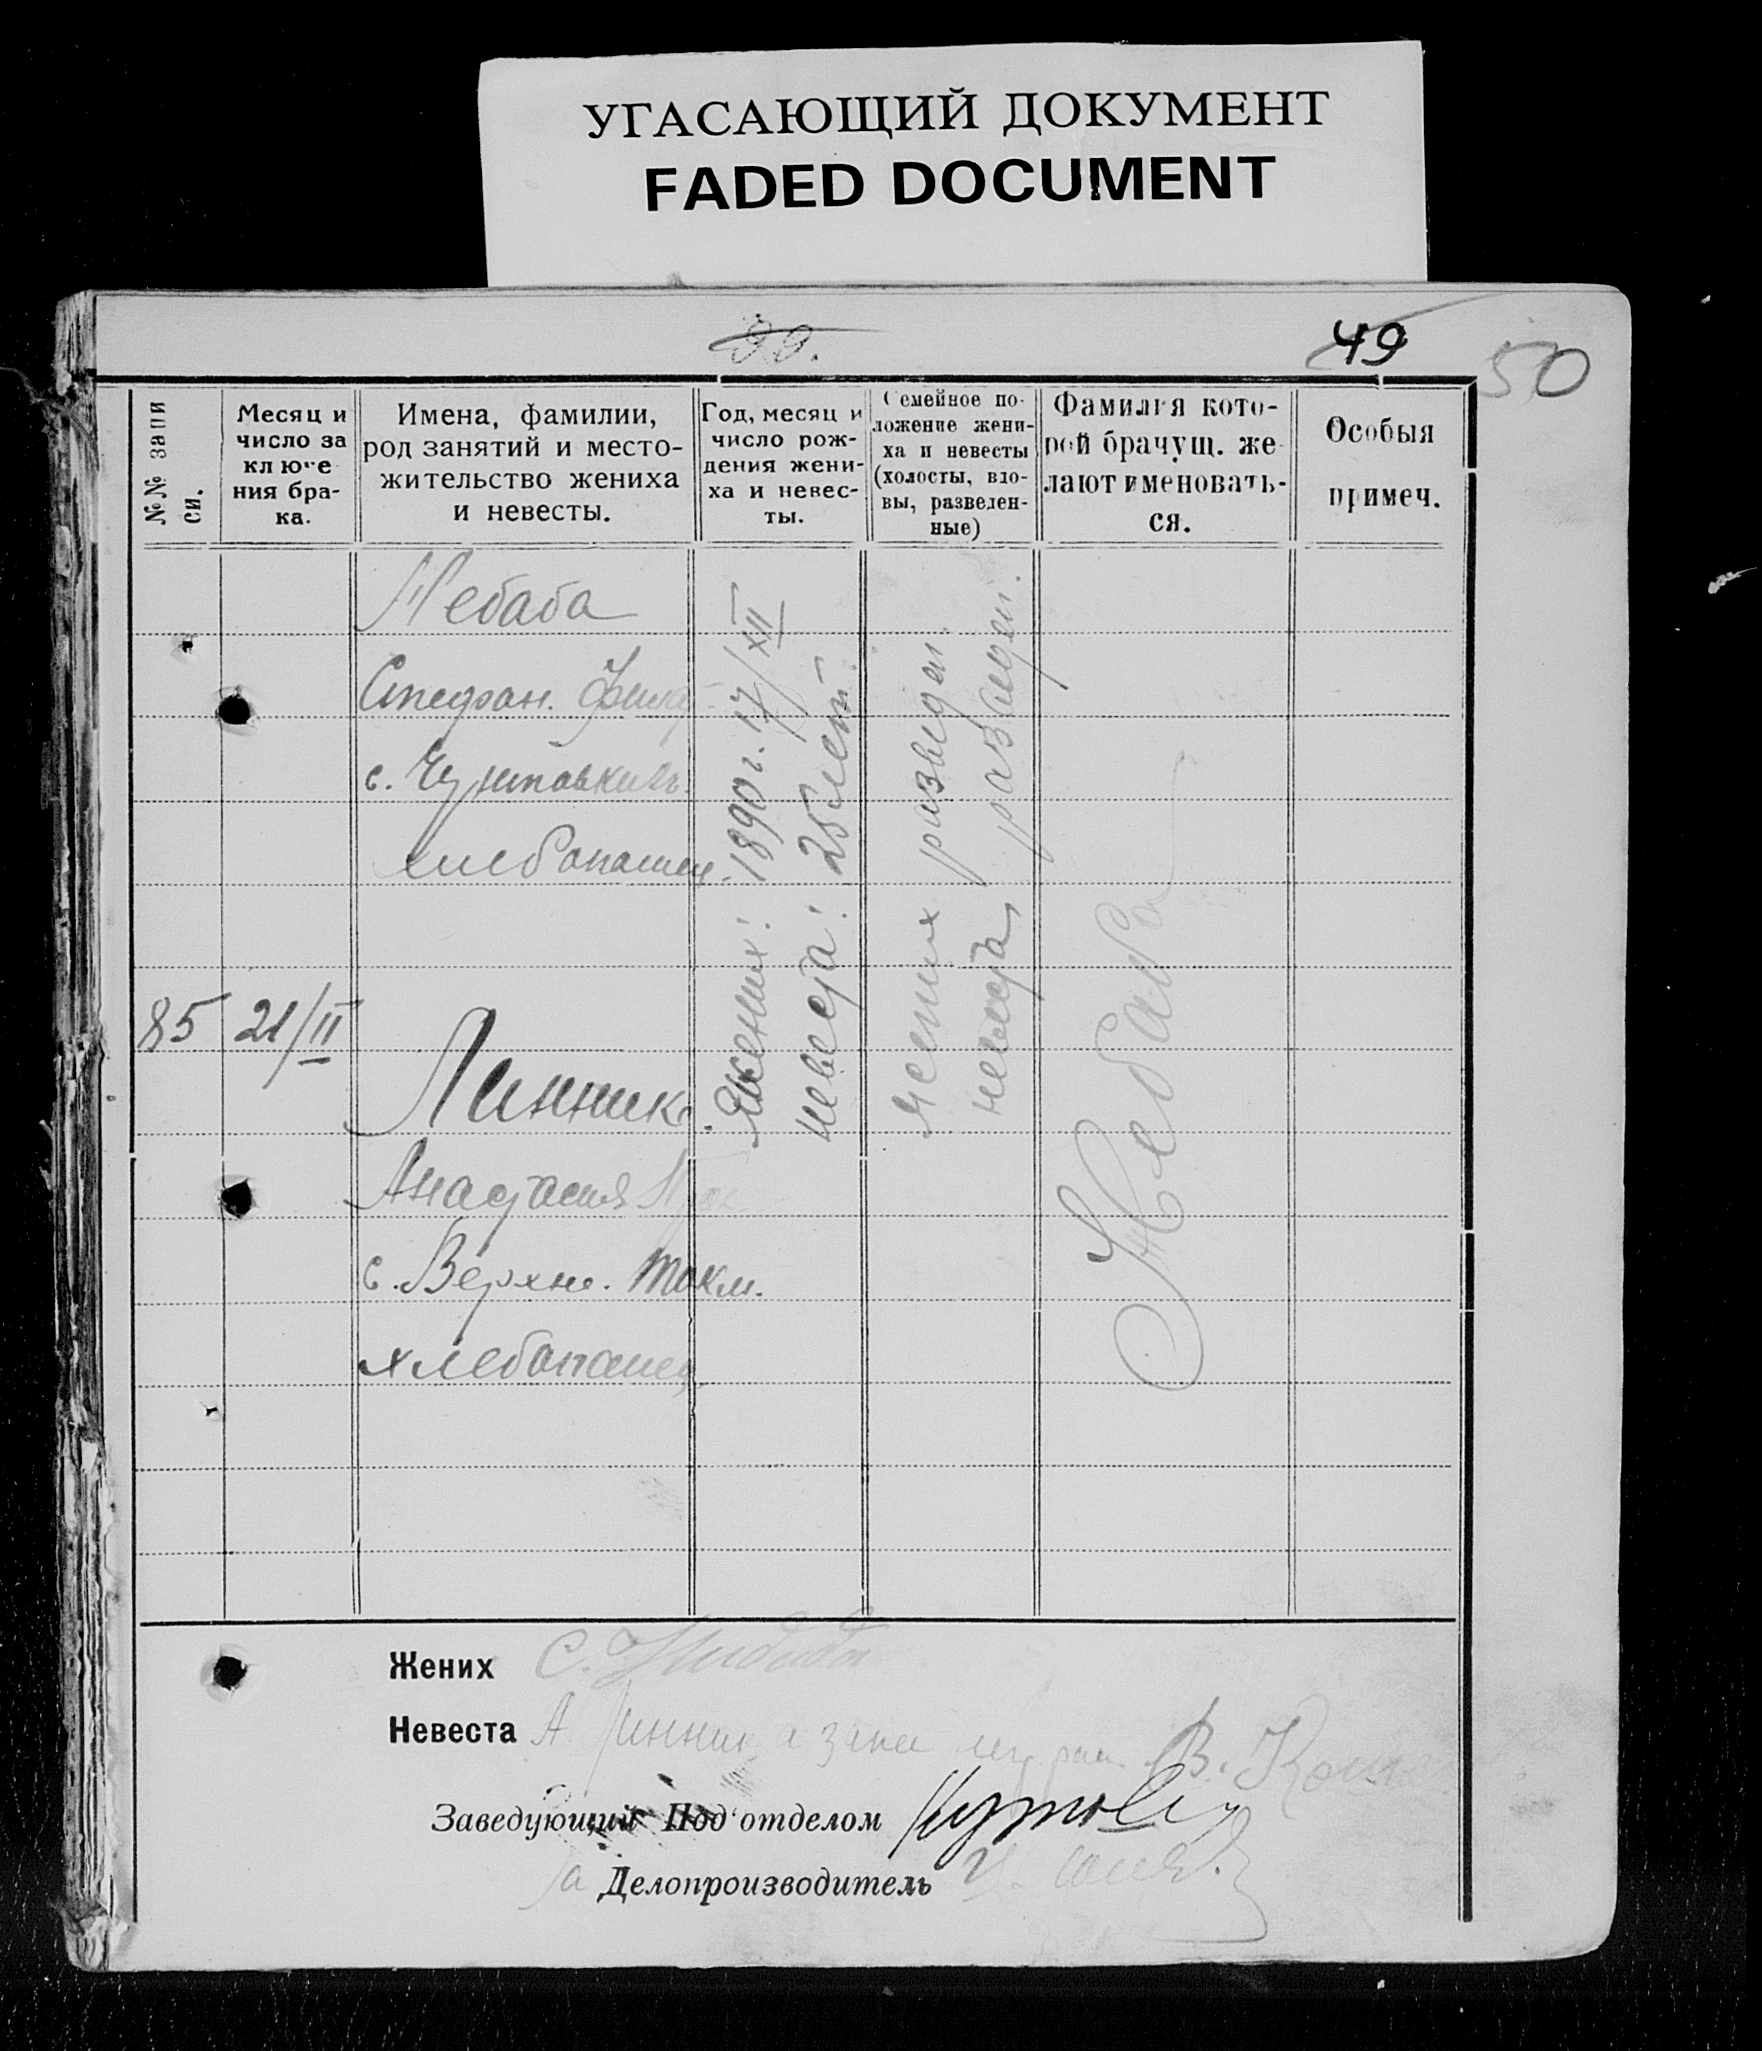 УГАСАЮЩИЙ ДОКУМЕНТ
FADED DOCUMENT
49
50
№№ запи си.
Месяц и число за клюЧе ния бра- ка.
Имена, фамилии, род занятий и место- жительство жениха и невесты.
Год, месяц и число рож- дения жени- ха и невес- ты.
Семейное по- ложение жени- ха и невесты (холосты, вдо- вы, разведен- ные)
Фамилия кото- рой брачущ. же лают именовать- ся.
Особыя примеч.
Небаба
Стефан.
с.
хлебопашец.
85 21/II
Линник
Анастасия
с. Верхн. Токм.
хлебопашец.
Жених: 1890 г. 17/XII
невеста: 25 лет.
жених разведен.
невеста разведен.
Небаба
Жених С.
Невеста А Линник а за нее
В.
Заведующий Под'отделом
Делопроизводитель